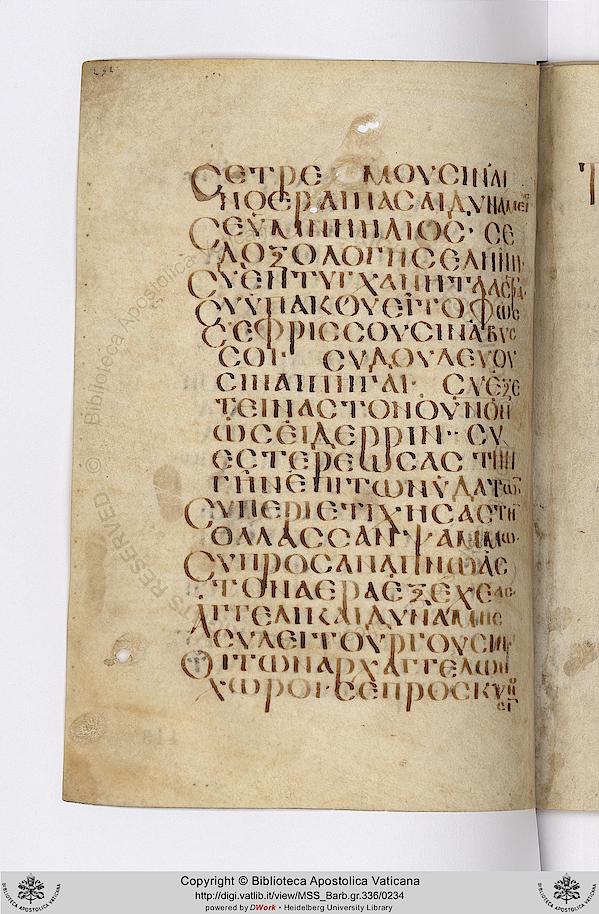 ΣΕΤΡΕΜΟΥΣΙΝΑΙ
ΝΟΕΡΑΙΠΑΣΑΙΔΥΝΑΜΕΙ
ΣΕΥΜΝΕΙΗΛΙΟΣ· ΣΕ
ΔΟΞΟΛΟΓΗΣΕΛΗΝΗ
ΣΥΕΝΤΥΓΧΑΝΗΤΑΑΣΤΡΑ
ΣΥΥΠΑΚΟΥΕΙΤΟΦΩΣ
ΣΕΦΡΙΣΣΟΥΣΙΝΑΒΥΣ
ΣΟΙ· ΣΥΔΟΥΛΕΥΟΥ
ΣΙΝΑΙΠΗΓΑΙ· ΣΥΕΞΕ
ΤΕΙΝΑΣΤΟΝΟΥΝΟΝ
ΩΣΕΙΔΕΡΡΙΝ· ΣΥ
ΕΣΤΕΡΕΩΣΑΣ ΤΗΝ
ΓΗΝΕΠΙΤΩΝΥΔΑΤΩΝ
ΣΥΠΕΡΙΕΤΙΧΗΣΑΣΤΗ
ΘΑΛΑΣΣΑΝΨΑΜΜΩ·
ΣΥΠΡΟΣΑΝΑΠΝΟΑΣ
ΤΟΝΑΕΡΑΕΞΕΧΕΑΣ
ΑΓΓΕΛΙΚΑΙΔΥΝΑΜΕΙΣ
ΣΥΛΕΙΤΟΥΡΓΟΥΣΙΝ
ΟΙΤΩΝΑΡΧΑΓΓΕΛΩΝ
ΧΩΡΟΙ·ΣΕΠΡΟΣΚΥΝ
ΕΙ
© Biblioteca Apostolica
RIGHTS RESERVED
Copyright © Biblioteca Apostolica Vaticana
http://digi.vatlib.it/view/MSS_Barb.gr.336/0234
powered by DWork • Heidelberg University Library